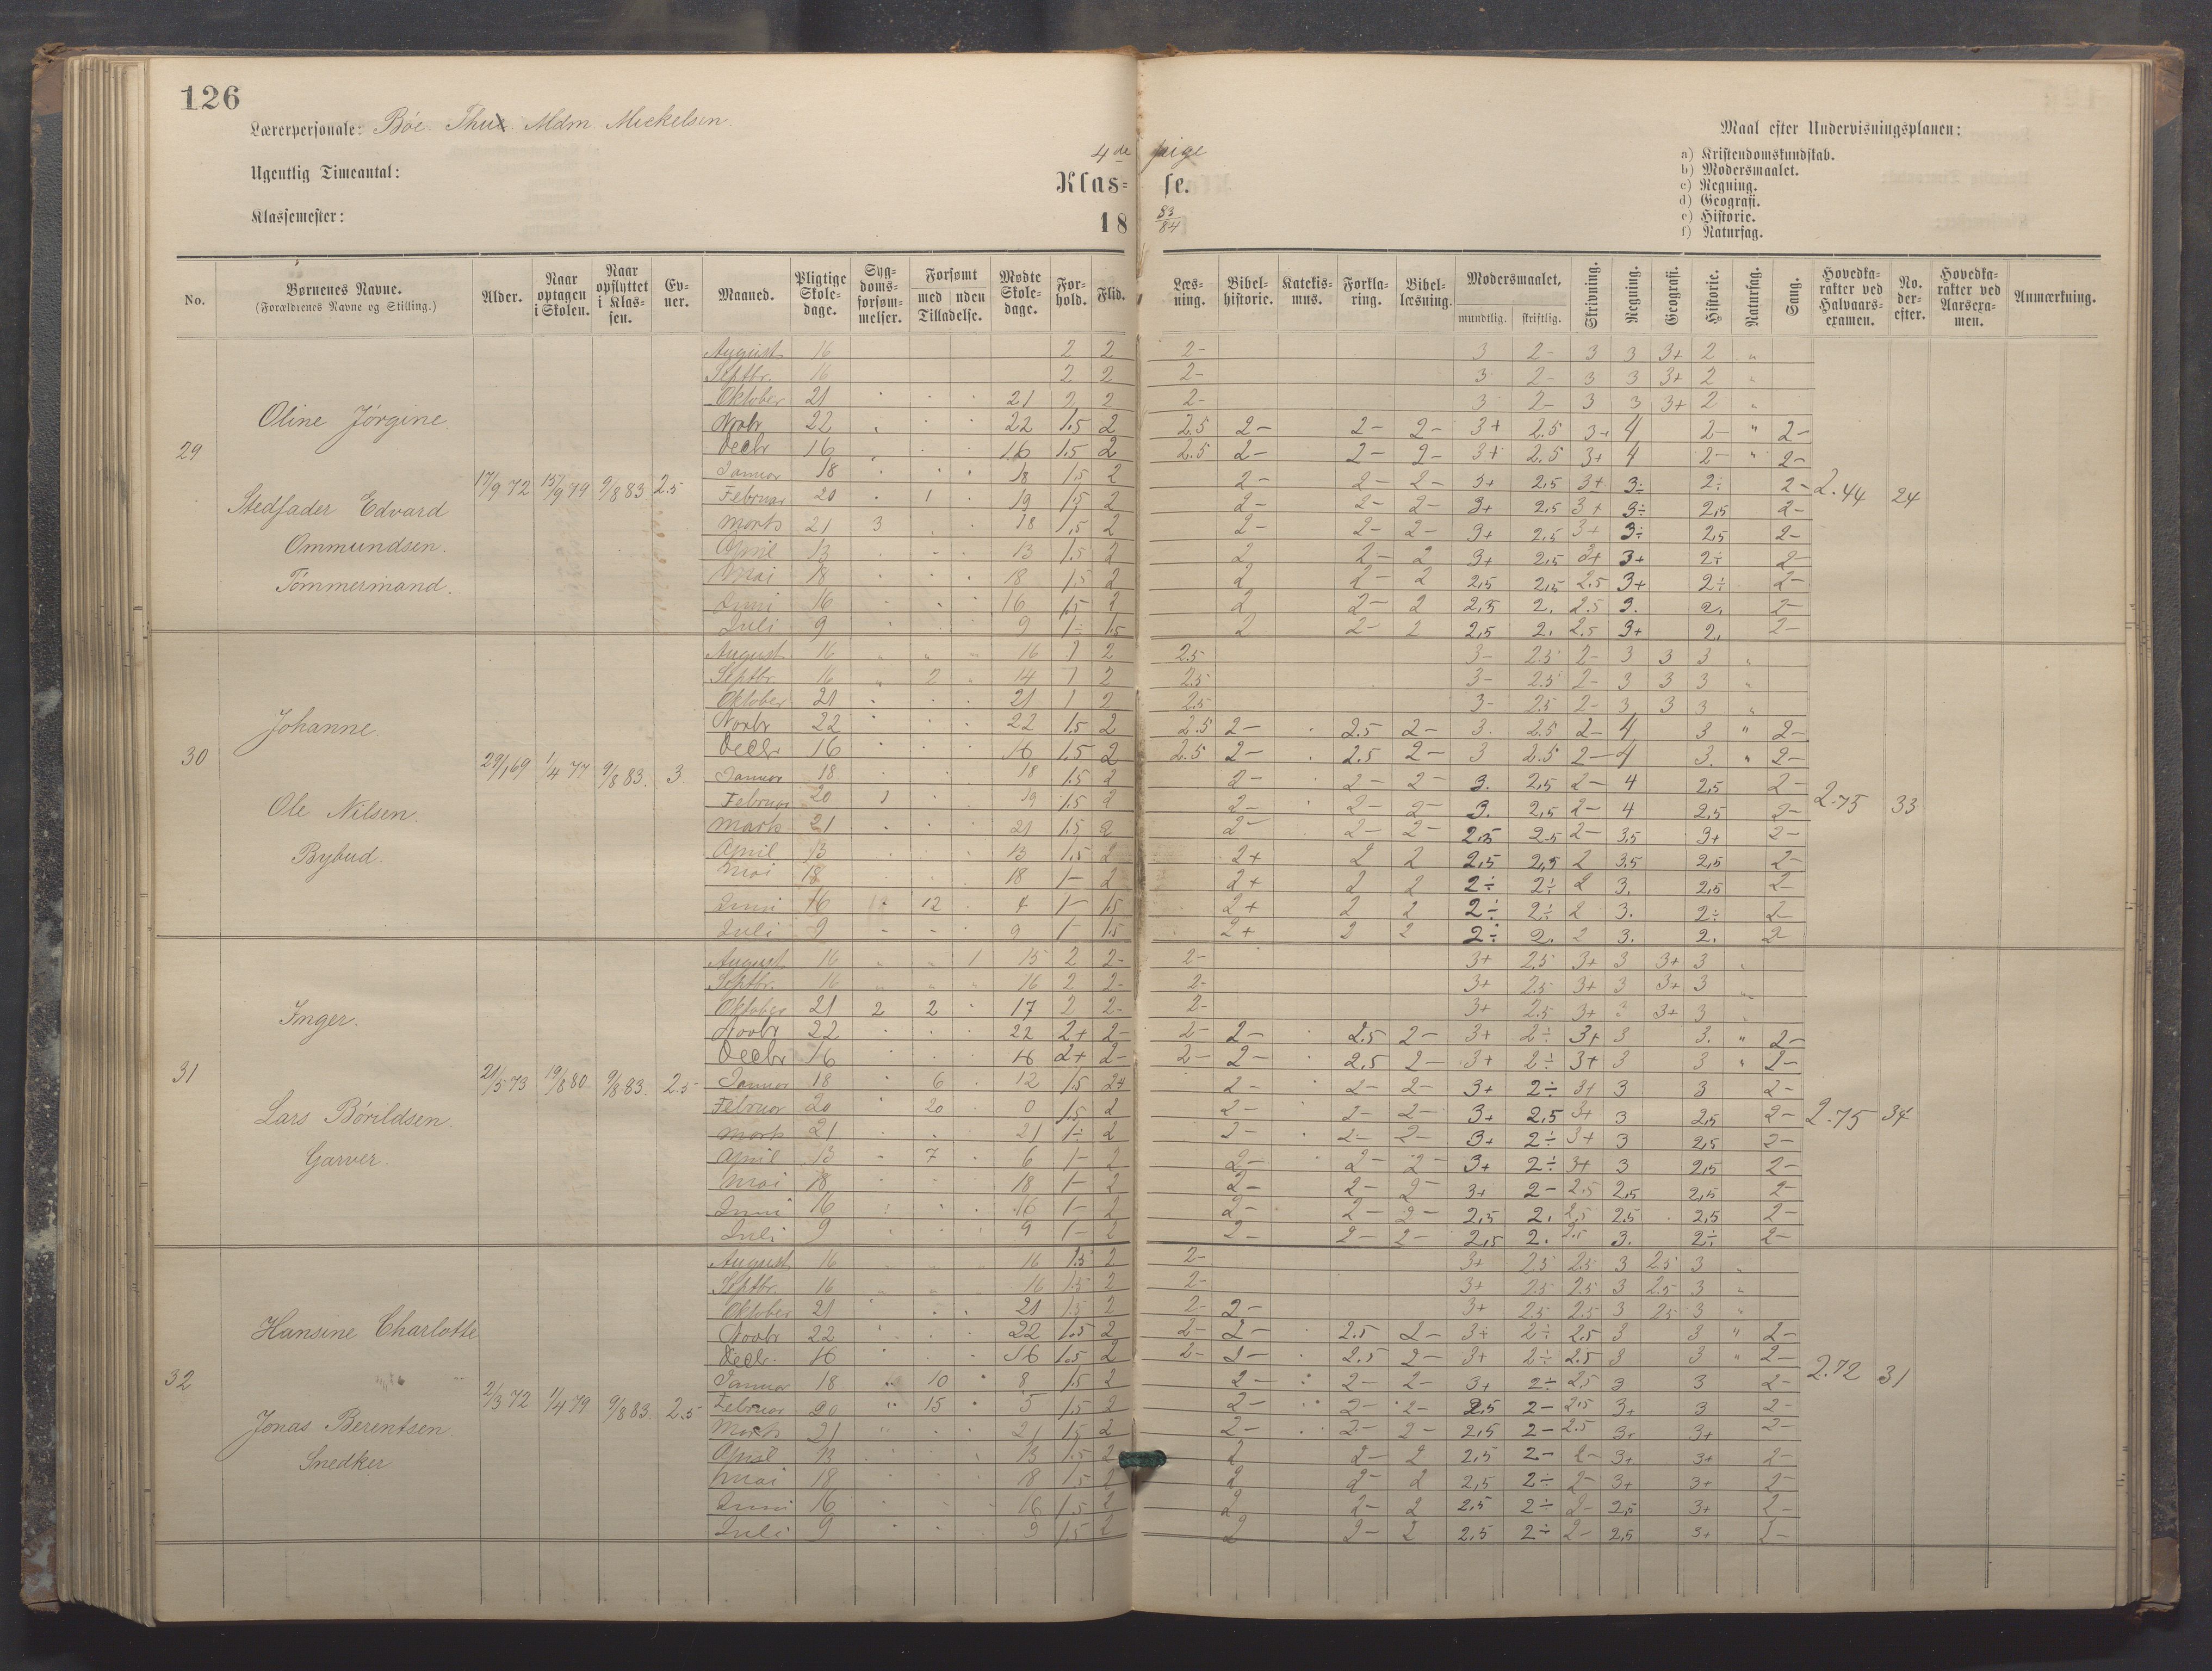 126
Lærerpersonale: Bóe. Thux. Mdm. Mickelsen.
Ugentlig Timeantal:
Klassemester:
4de pige
Klas= se.
18 83/84
Maal efter Undervisningsplanen:
a) Kristendomskundskab.
b) Modersmaalet.
c) Regning.
d) Geografi.
e) Historie.
f) Naturfag.
No. | Børnenes Navne. (Forældrenes Navne og Stilling.) | Alder. | Naar optagen i Skolen. | Naar opflyttet i Klas-sen. | Ev-ner. | Maaned. | Pligtige Skole-dage. | Syg-doms-forsøm-melser. | Forsømt med | uden Tilladelse. | Mødte Skole-dage. | For-hold. | Flid. | Læs-ning. | Bibel-historie. | Katekis-mus. | Forkla-ring. | Bibel-læsning. | Modersmaalet, mundtlig. | skriftlig. | Skrivning. | Regning. | Geografi. | Historie. | Naturfag. | Sang. | Hovedka-rakter ved Halvaars-examen. | No. der-efter. | Hovedka-rakter ved Aarsexa-men. | Anmærkning.
29 Oline Jórgine. Stedfader Edvard Ommundsen. Tómmermand. 17/9 72 15/9 79 9/8 83 2.5 2.44 24
August 16 2 2 2- 3 2- 3 3 3+ 2 "
Septbr. 16 2 2 2- 3 2- 3 3 3+ 2 "
Oktober 21 21 2 2 2- 3 2- 3 3 3+ 2 "
Novbr 22 22 1.5 2 2.5 2- 2- 2- 3+ 2.5 3+ 4 2- " 2-
Decbr 16 16 1.5 2 2.5 2- 2- 2- 3+ 2.5 3+ 4 2- " 2-
Januar 18 18 1.5 2 2- 2- 2- 3+ 2,5 3+ 3÷ 2÷ 2-
Februar 20 1 19 1.5 2 2- 2- 2- 3+ 2,5 3+ 3÷ 2,5 2-
Marts 21 3 18 1.5 2 2- 2- 2- 3+ 2,5 3+ 3÷ 2,5 2-
April 13 13 1.5 2 2 2- 2 3+ 2,5 3+ 3+ 2÷ 2-
Mai 18 18 1.5 2 2 2- 2 2,5 2,5 2.5 3+ 2÷ 2-
Juni 16 16 1.5 2 2 2- 2 2,5 2. 2.5 3. 2. 2-
Juli 9 9 1÷ 1.5 2 2- 2 2,5 2. 2.5 3+ 2. 2-
30 Johanne. Ole Nilsen. Bybud. 29/1 69 1/4 77 9/8 83. 3. 2.75 33
August 16 " " " 16 1 2 2.5 3- 2.5 2- 3 3 3 "
Septbr. 16 " 2 " 14 1 2 2.5 3- 2.5 2- 3 3 3 "
Oktober 21 21 1 2 2.5 3- 2.5 2- 3 3 3 "
Novbr 22 22 1.5 2 2.5 2- 2.5 2- 3. 2.5 2- 4 3 " 2-
Decbr 16 16 1.5 2 2.5 2- 2.5 2- 3 2.5 2- 4 3. " 2-
Januar 18 18 1.5 2 2- 2- 2- 3. 2,5 2- 4 2,5 2-
Februar 20 1 19 1.5 2 2- 2- 2- 3. 2,5 2- 4 2,5 2-
Marts 21 21 1.5 2 2- 2- 2- 2,5 2.5 2- 3,5 3+ 2-
April 13 13 1.5 2 2+ 2 2 2,5 2,5 2 3.5 2,5 2-
Mai 18 18 1- 2 2+ 2 2 2÷ 2÷ 2 3. 2,5 2-
Juni 16 12 4 1- 1.5 2+ 2 2 2÷ 2÷ 2 3. 2÷ 2-
Juli 9 9 1- 1.5 2+ 2 2 2÷ 2. 2 3. 2. 2-
31 Inger. Lars Bórildsen. Garver. 21/5 73 19/8 80. 9/8 83. 2.5 2.75 34
August 16 " " 1 15 2 2- 2- 3+ 2.5 3+ 3 3+ 3 "
Septbr. 16 " " " 16 2 2- 2- 3+ 2.5 3+ 3 3+ 3 "
Oktober 21 2 2 17 2 2- 2- 3+ 2.5 3+ 3 3+ 3
Novbr 22 22 2+ 2- 2- 2- 2.5 2- 3+ 2÷ 3+ 3 3. " 2-
Decbr 16 16 2+ 2- 2- 2- 2.5 2- 3+ 2÷ 3+ 3 3 " 2-
Januar 18 6 12 1.5 2+ 2- 2- 2- 3+ 2÷ 3+ 3 3 2-
Februar 20 20 0 1.5 2 2- 2- 2- 3+ 2,5 3+ 3 2,5 2-
Marts 21 21 1÷ 2 2- 2- 2- 3+ 2÷ 3+ 3 2,5 2-
April 13 7 6 1- 2 2- 2- 2- 3+ 2÷ 3+ 3 2,5 2-
Mai 18 18 1- 2 2- 2- 2- 3+ 2- 2.5 2,5 2,5 2-
Juni 16 16 1- 2 2- 2- 2- 2,5 2. 2.5 2.5 2,5 2-
Juli 9 9 1- 2 2- 2- 2- 2,5 2. 2.5 3. 2÷ 2-
32 Hansine Charlotte Jonas Berentsen Snedker 2/3 72 1/4 79 9/8 83. 2.5 2.72 31
August 16 16 1.5 2 2- 3+ 2.5 2.5 3 2.5 3 "
Septbr. 16 16 1.5 2 2- 3+ 2.5 2.5 3 2.5 3 "
Oktober 21 21 1.5 2 2- 2- 3+ 2.5 2.5 3 2.5 3 "
Novbr 22 22 1.5 2 2- 2- 2.5 2- 3+ 2÷ 2.5 3 3 " 2-
Decbr. 16 16 1.5 2 2- 2- 2.5 2- 3+ 2÷ 2.5 3 3 " 2-
Januar 18 10 8 1.5 2 2- 2- 2- 3+ 2÷ 2.5 3 3 2-
Februar 20 15 5 1.5 2 2- 2- 2- 2,5 2- 2.5 3+ 3 2-
Marts 21 21 1.5 2 2- 2- 2- 2,5 2- 2.5 3+ 3+ 2-
April 13 13 1.5 2 2 2- 2 2,5 2- 2- 3+ 3+ 2-
Mai 18 18 1.5 2 2 2- 2 2,5 2÷ 2- 3+ 3+ 2-
Juni 16 16 1.5 2 2 2- 2 2,5 2÷ 2- 2,5 3+ 2-
Juli 9 9 1.5 2 2 2- 2 2,5 2÷ 2- 2,5 3+ 2-